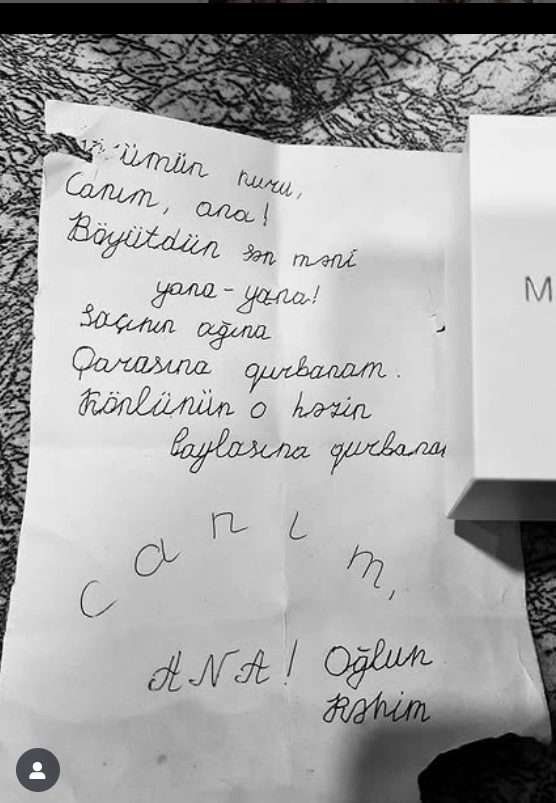 nuru,
Canım, ana!
Böyütdün sən məni
yana-yana!
Saçının ağına
Qarasına qurbanam.
Könlünün o həzin
laylasına qurbana
M
Canım,
ANA! Oğlun
Rəhim